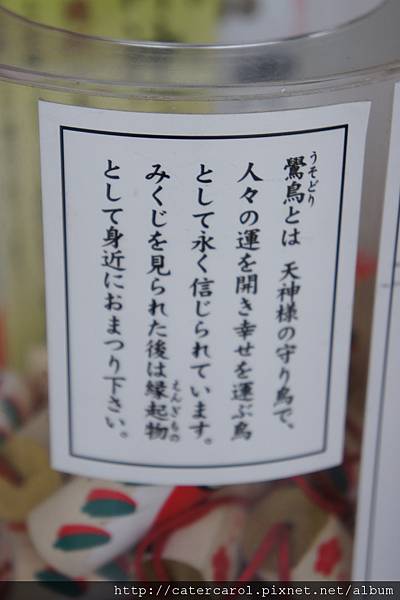 鷽鳥とは 天神様の守り鳥で、
うそどり
人々の運を開き幸せを運ぶ鳥
として永く信じられています。
みくじを見られた後は縁起物
えんぎもの
として身近におまつり下さい。
http://catercarol.pixnet.net/album